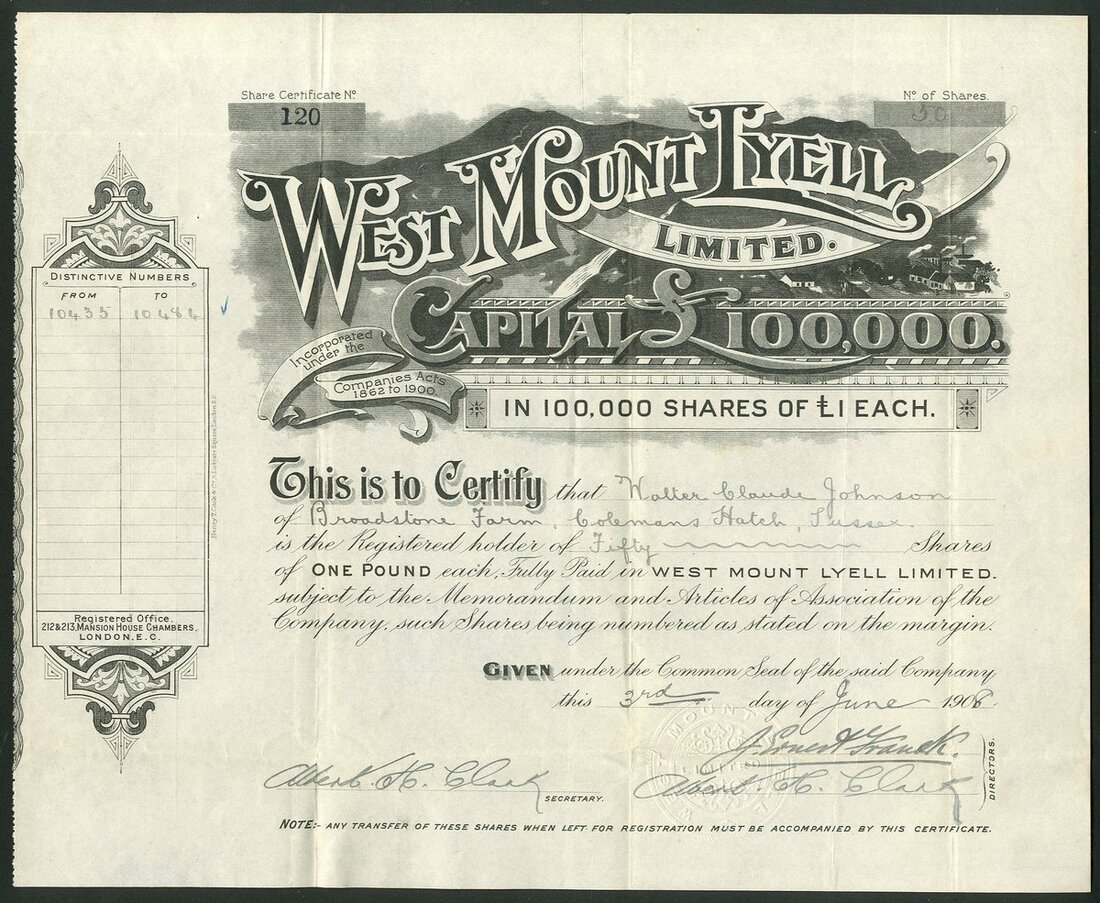 Share Certificate No.
120
No. of Shares.
50
WEST MOUNT LYELL
LIMITED.
CAPITAL £100,000.
Incorporated
under the
Companies Acts
1862 to 1900
IN 100,000 SHARES OF £1 EACH.
DISTINCTIVE NUMBERS
FROM TO
10435 10484
Registered Office.
212 & 213, MANSION HOUSE CHAMBERS,
LONDON, E.C.
This is to Certify that Walter Claude Johnson
of Broadstone Farm, Colemans Hatch, Sussex
is the Registered holder of Fifty Shares
of ONE POUND each, Fully Paid in WEST MOUNT LYELL LIMITED.
subject to the Memorandum and Articles of Association of the
Company, such Shares being numbered as stated on the margin.
GIVEN under the Common Seal of the said Company
this 3rd day of June 1908.
Albert. H. Clark
SECRETARY.
Albert. H. Clark
DIRECTORS.
NOTE:- ANY TRANSFER OF THESE SHARES WHEN LEFT FOR REGISTRATION MUST BE ACCOMPANIED BY THIS CERTIFICATE.